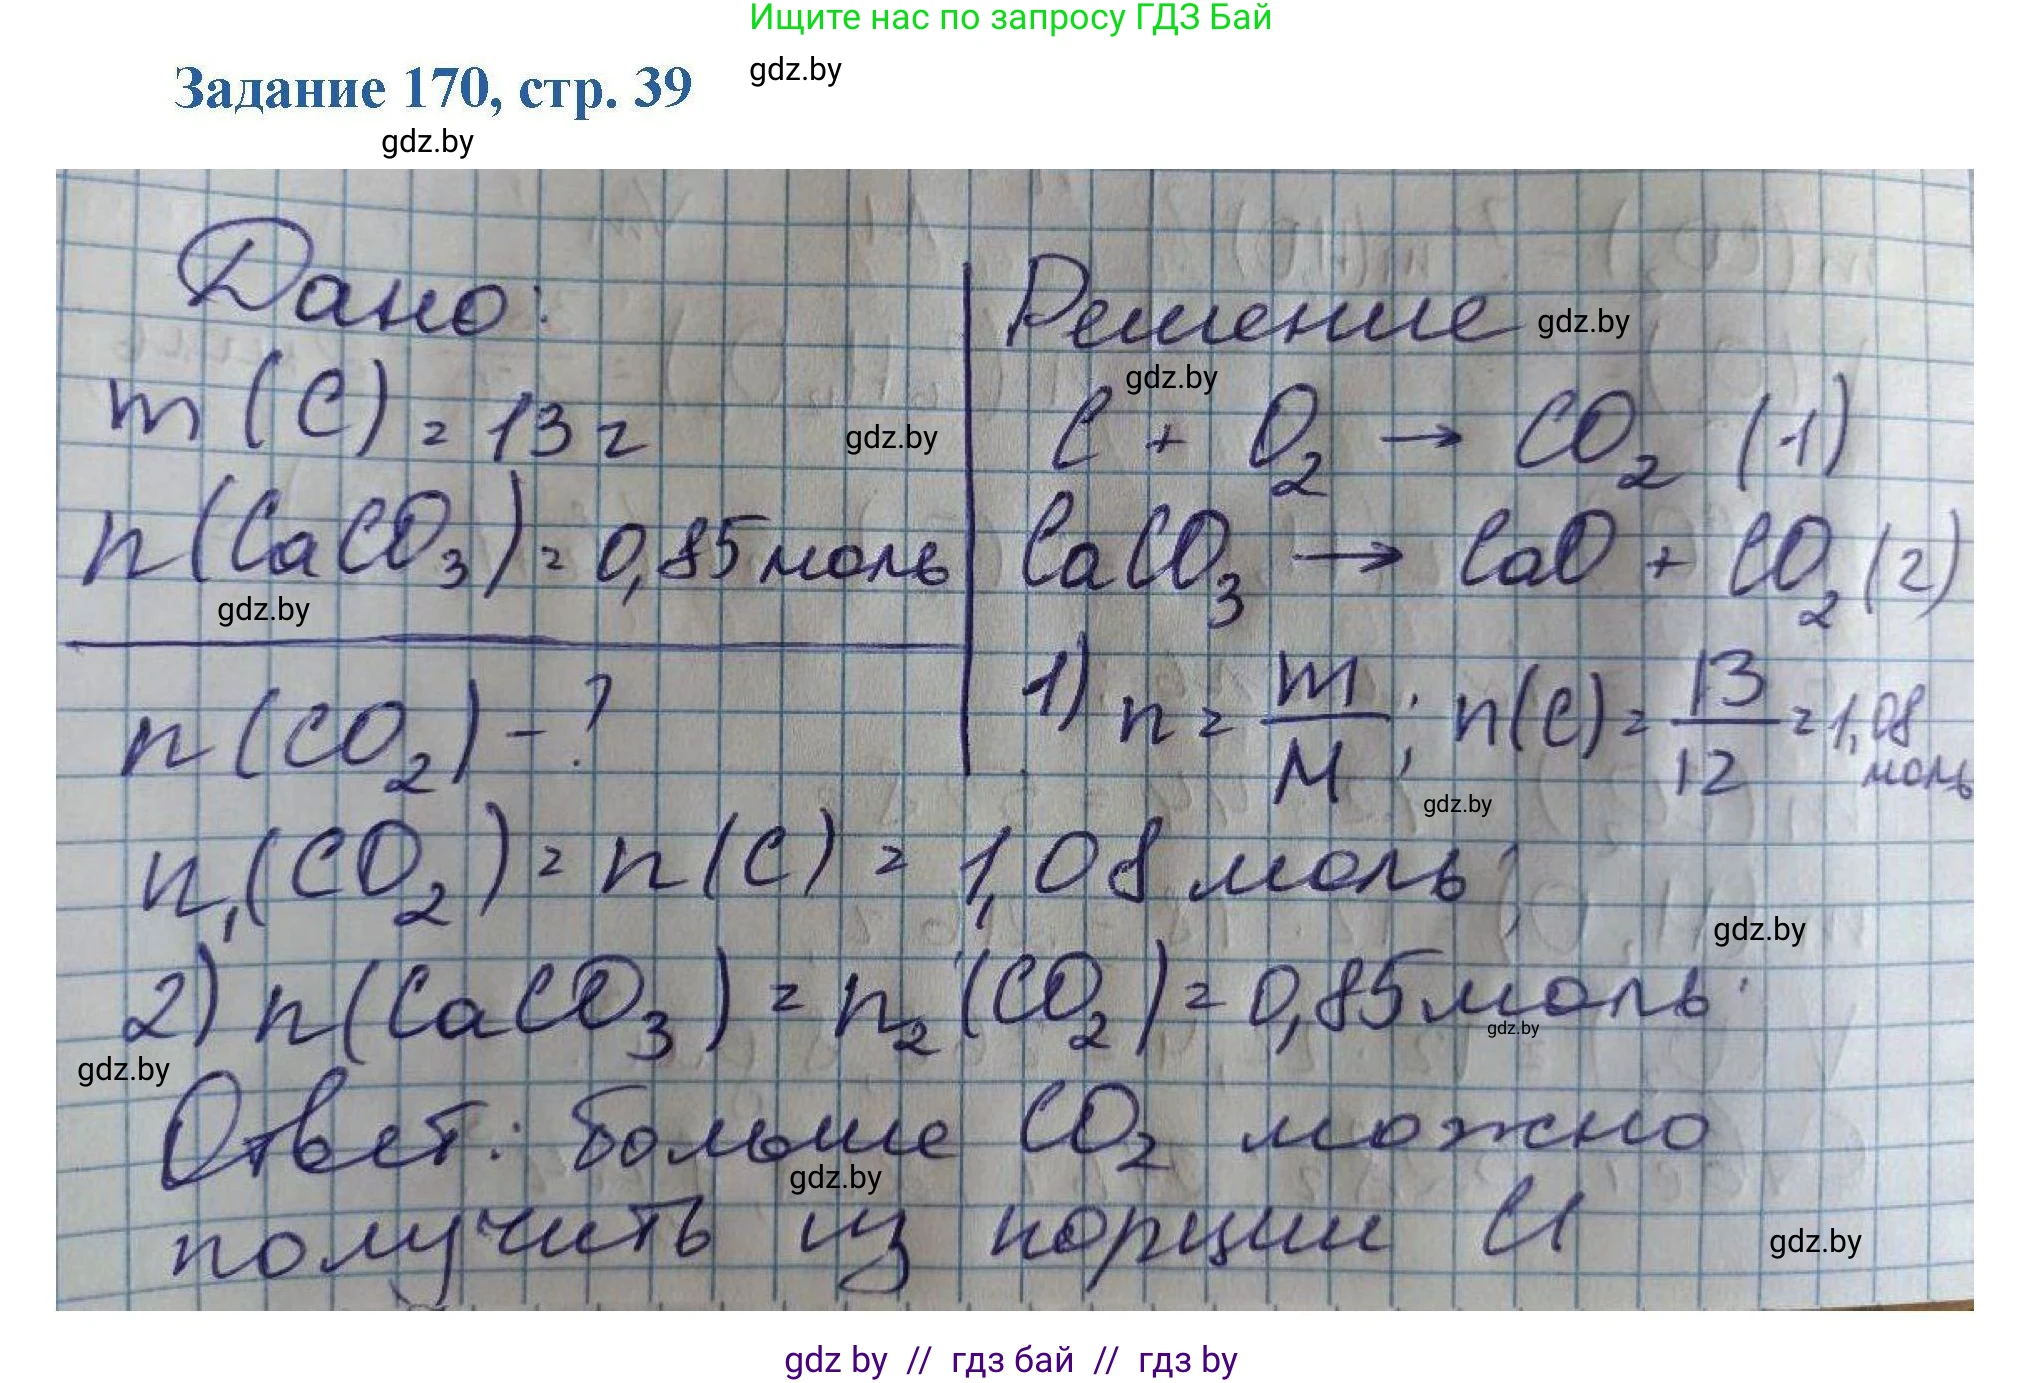 Ищите нас по запросу ГДЗ Бай
gdz.by
Задание 170, стр. 39
gdz.by
Дано:
m(C) = 13 г
gdz.by
n(CaCO₃) = 0,85 моль
gdz.by
n(CO₂) - ?
Решение
gdz.by
gdz.by
C + O₂ → CO₂ (1)
CaCO₃ → CaO + CO₂ (2)
1) n = m/M; n(C) = 13/12 = 1,08 моль
gdz.by
n₁(CO₂) = n(C) = 1,08 моль;
gdz.by
2) n(CaCO₃) = n₂(CO₂) = 0,85 моль.
gdz.by
gdz.by
Ответ: больше CO₂ можно
gdz.by
получить из порции
gdz.by
gdz by // гдз бай // гдз by